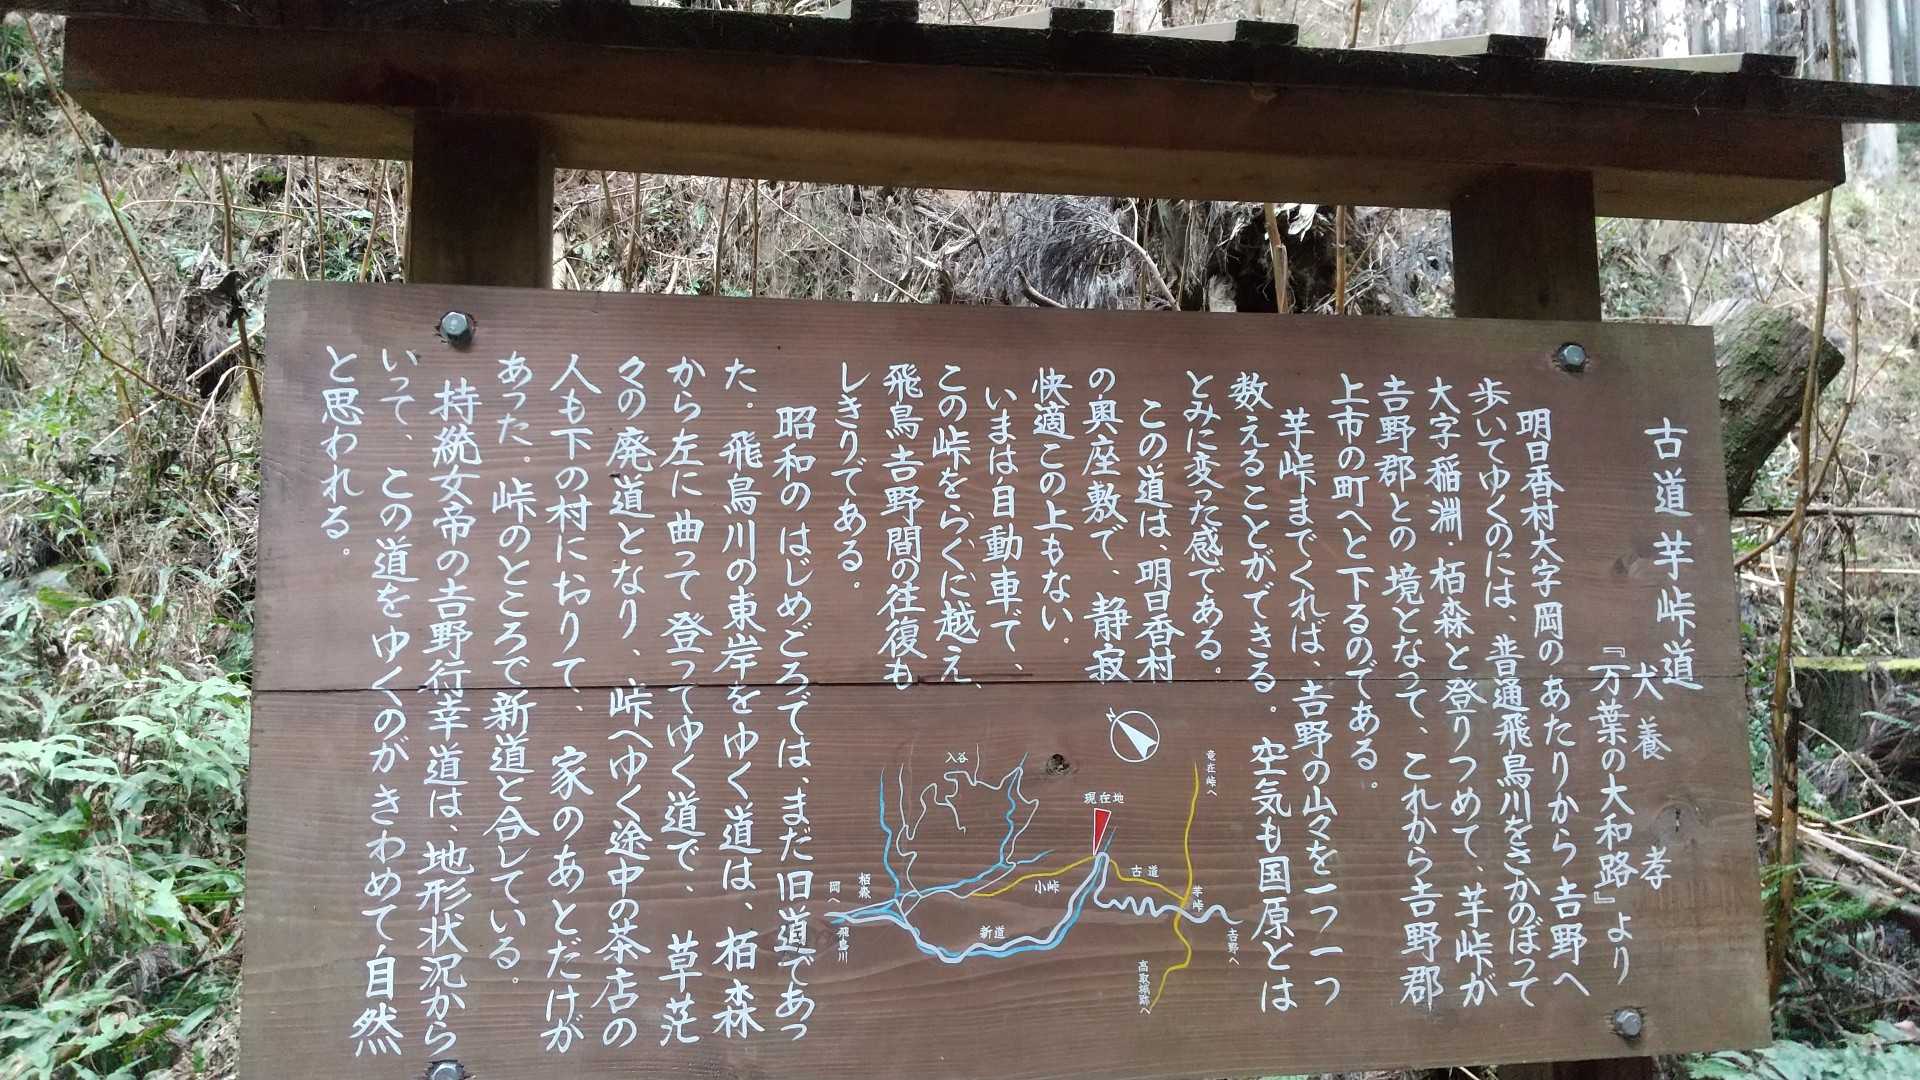 古道芋峠道
犬養 孝
『万葉の大和路』より
明日香村大字岡のあたりから吉野へ
歩いてゆくのには、普通飛鳥川をさかのぼって
大字稲淵・栢森と登りつめて、芋峠が
吉野郡との境となって、これから吉野郡
上市の町へと下るのである。
芋峠までくれば、吉野の山々を一つ一つ
数えることができる。空気も国原とは
とみに変った感である。
この道は、明日香村
の奥座敷で、静寂
快適この上もない。
いまは自動車で、
この峠をらくに越え、
飛鳥吉野間の往復も
しきりである。
昭和のはじめごろでは、まだ旧道であっ
た。飛鳥川の東岸をゆく道は、栢森
から左に曲って登ってゆく道で、草茫
々の廃道となり、峠へゆく途中の茶店の
人も下の村におりて、家のあとだけが
あった。峠のところで新道と合している。
持統女帝の吉野行幸道は、地形状況から
いって、この道をゆくのがきわめて自然
と思われる。
N
入谷
現在地
竜在峠へ
古道
小峠
芋峠
栢森
岡へ
飛鳥川
新道
吉野へ
高取城跡へ